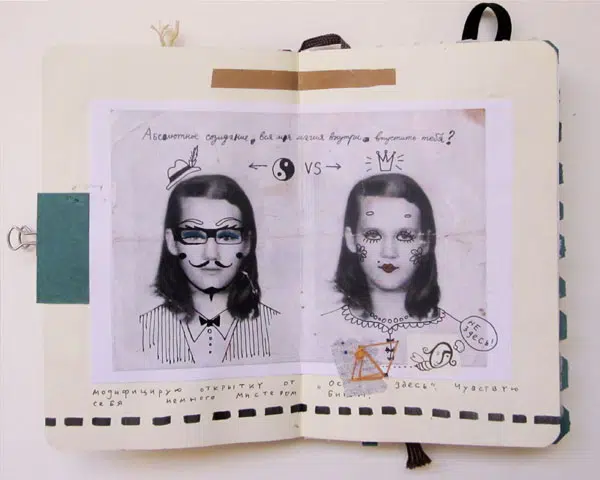 Абсолютное созидание, вся моя магия внутри, впустить тебя?
VS
НЕ ЗДЕСЬ!
модифицирую открытку от здесь". Чувствую
себя немного мистером